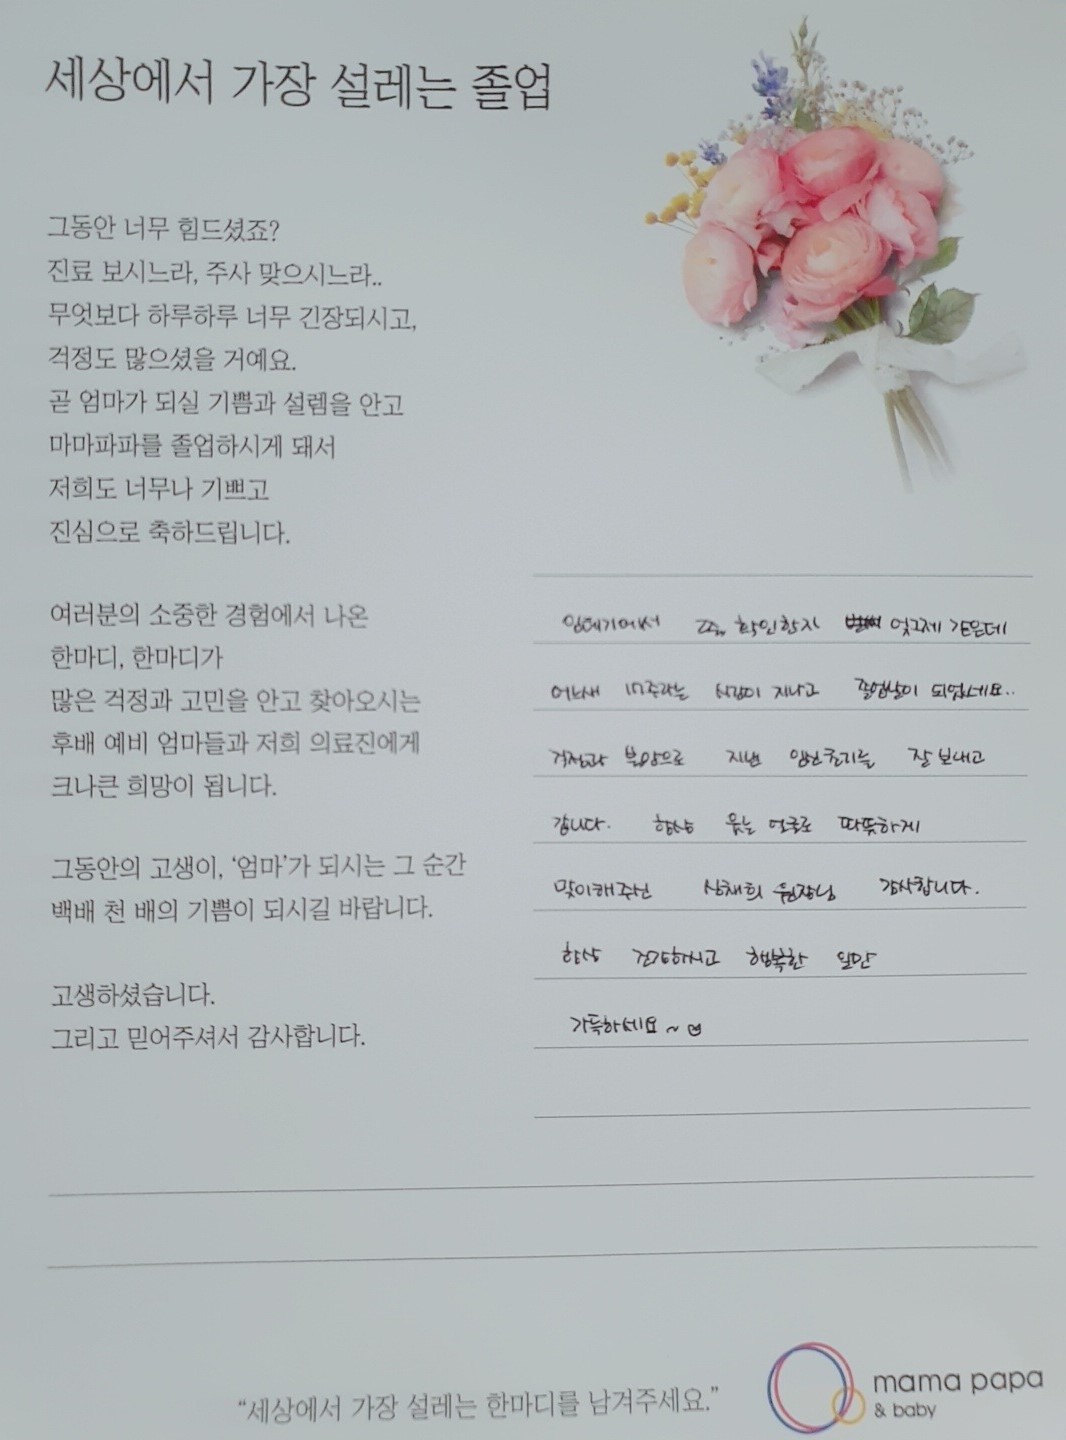 세상에서 가장 설레는 졸업
그동안 너무 힘드셨죠?
진료 보시느라, 주사 맞으시느라..
무엇보다 하루하루 너무 긴장되시고,
걱정도 많으셨을 거예요.
곧 엄마가 되실 기쁨과 설렘을 안고
마마파파를 졸업하시게 돼서
저희도 너무나 기쁘고
진심으로 축하드립니다.
여러분의 소중한 경험에서 나온
한마디, 한마디가
많은 걱정과 고민을 안고 찾아오시는
후배 예비 엄마들과 저희 의료진에게
크나큰 희망이 됩니다.
그동안의 고생이, '엄마'가 되시는 그 순간
백배 천 배의 기쁨이 되시길 바랍니다.
고생하셨습니다.
그리고 믿어주셔서 감사합니다.
임테기에서 확인한지 엊그제 같은데
어느새 10주라는 시간이 지나고 졸업날이 되었네요..
걱정과 불안으로 지낸 임신초기를 잘 보내고
갑니다. 항상 웃는 얼굴로 따뜻하게
맞이해주신 원장님 감사합니다.
항상 건강하시고 행복한 일만
가득하세요~
"세상에서 가장 설레는 한마디를 남겨주세요."
mama papa
& baby